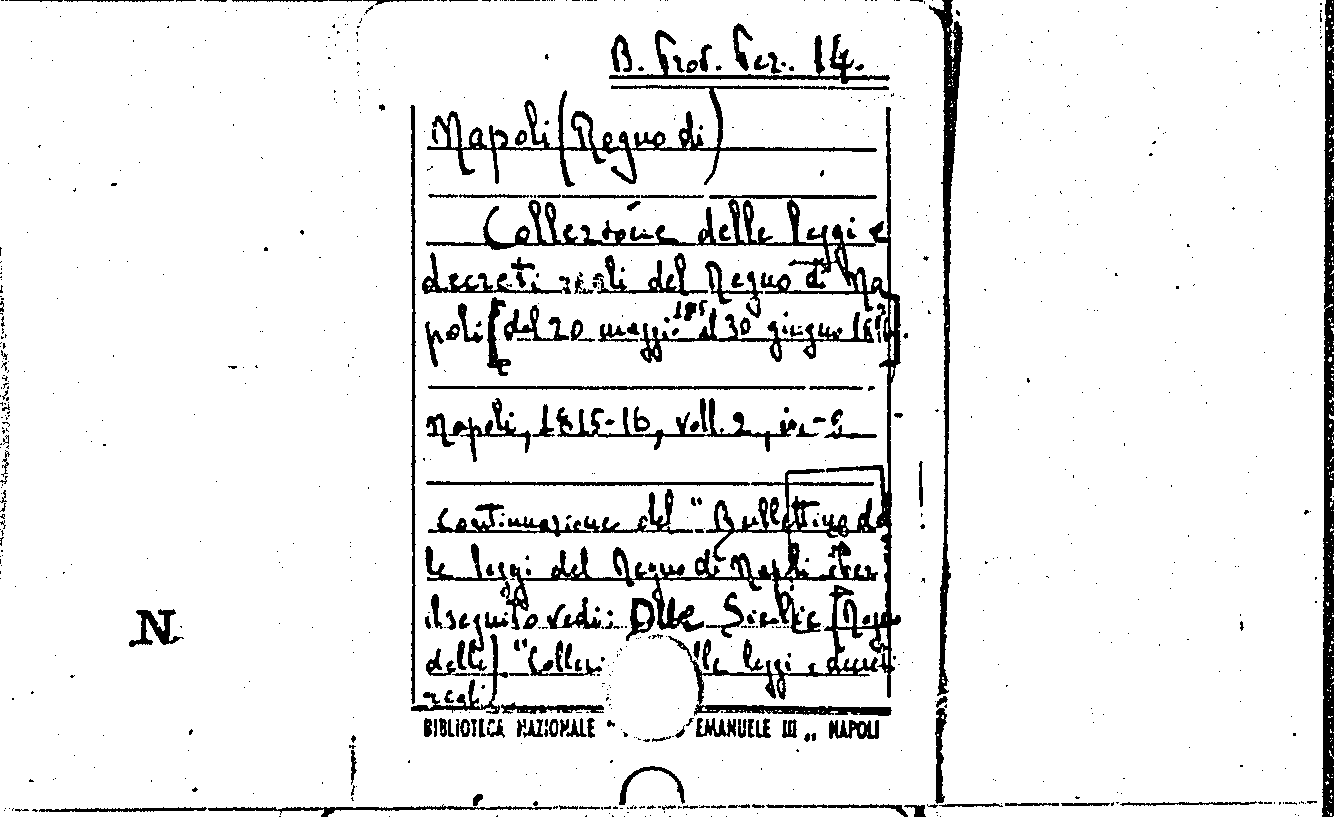 B. Prov. Ver. 14.
Napoli (Regno di)
Collezione delle leggi e
decreti reali del Regno di Na
poli [dal 20 maggio 1815 al 30 giugno 1816].
Napoli, 1815-16, voll. 2, in-8
Continuazione del "Bullettino del
le leggi del Regno di Napoli". Per
il seguito vedi: Due Sicilie (Regno
delle). "Collezi lle leggi e decreti
reali
N
BIBLIOTECA NAZIONALE " EMANUELE III „ NAPOLI